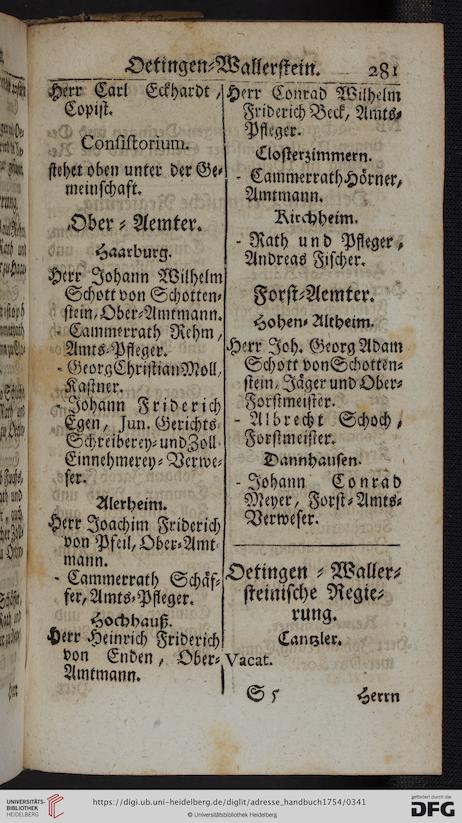 Oetingen-Wallerstein. 281
Herr Carl Eckhardt,
Copist.
Consistorium.
stehet oben unter der Ge-
meinschaft.
Ober-Aemter.
Haarburg.
Herr Johann Wilhelm
Schott von Schotten-
stein, Ober-Amtmann.
- Cammerrath Rehm,
Amts-Pfleger.
- Georg Christian Moll,
Kastner.
- Johann Friderich
Egen, Jun. Gerichts
Schreiberey- und Zoll
Einnehmerey-Verwe-
ser.
Alerheim.
Herr Joachim Friderich
von Pfeil, Ober-Amt
mann.
- Cammerrath Schäf-
fer, Amts-Pfleger.
Hochhauß.
Herr Heinrich Friderich
von Enden, Ober-
Amtmann.
Herr Conrad Wilhelm
Friderich Beck, Amts-
Pfleger.
Closterzimmern.
- Cammerrath Hörner,
Amtmann.
Kirchheim.
- Rath und Pfleger,
Andreas Fischer.
Forst-Aemter.
Hohen-Altheim.
Herr Joh. Georg Adam
Schott von Schotten-
stein, Jäger und Ober-
Forstmeister.
- Albrecht Schoch,
Forstmeister.
Dannhausen.
- Johann Conrad
Meyer, Forst-Amts-
Verweser.
Oetingen-Waller-
steinische Regie-
rung.
Cantzler.
Vacat.
S 5 Herrn
UNIVERSITÄTS-
BIBLIOTHEK
HEIDELBERG
https://digi.ub.uni-heidelberg.de/diglit/adresse_handbuch1754/0341
© Universitätsbibliothek Heidelberg
gefördert durch die
DFG